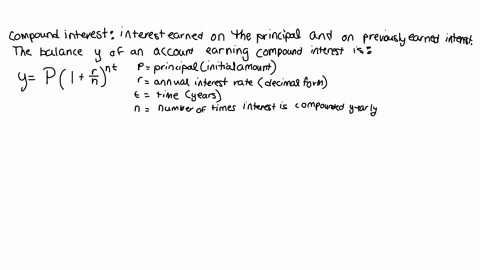 Compound interest: interest earned on the principal and on previously earned interest.
The balance y of an account earning compound interest is:
y = P(1 + r/n)^nt
P = principal (initial amount)
r = annual interest rate (decimal form)
t = time (years)
n = number of times interest is compounded yearly